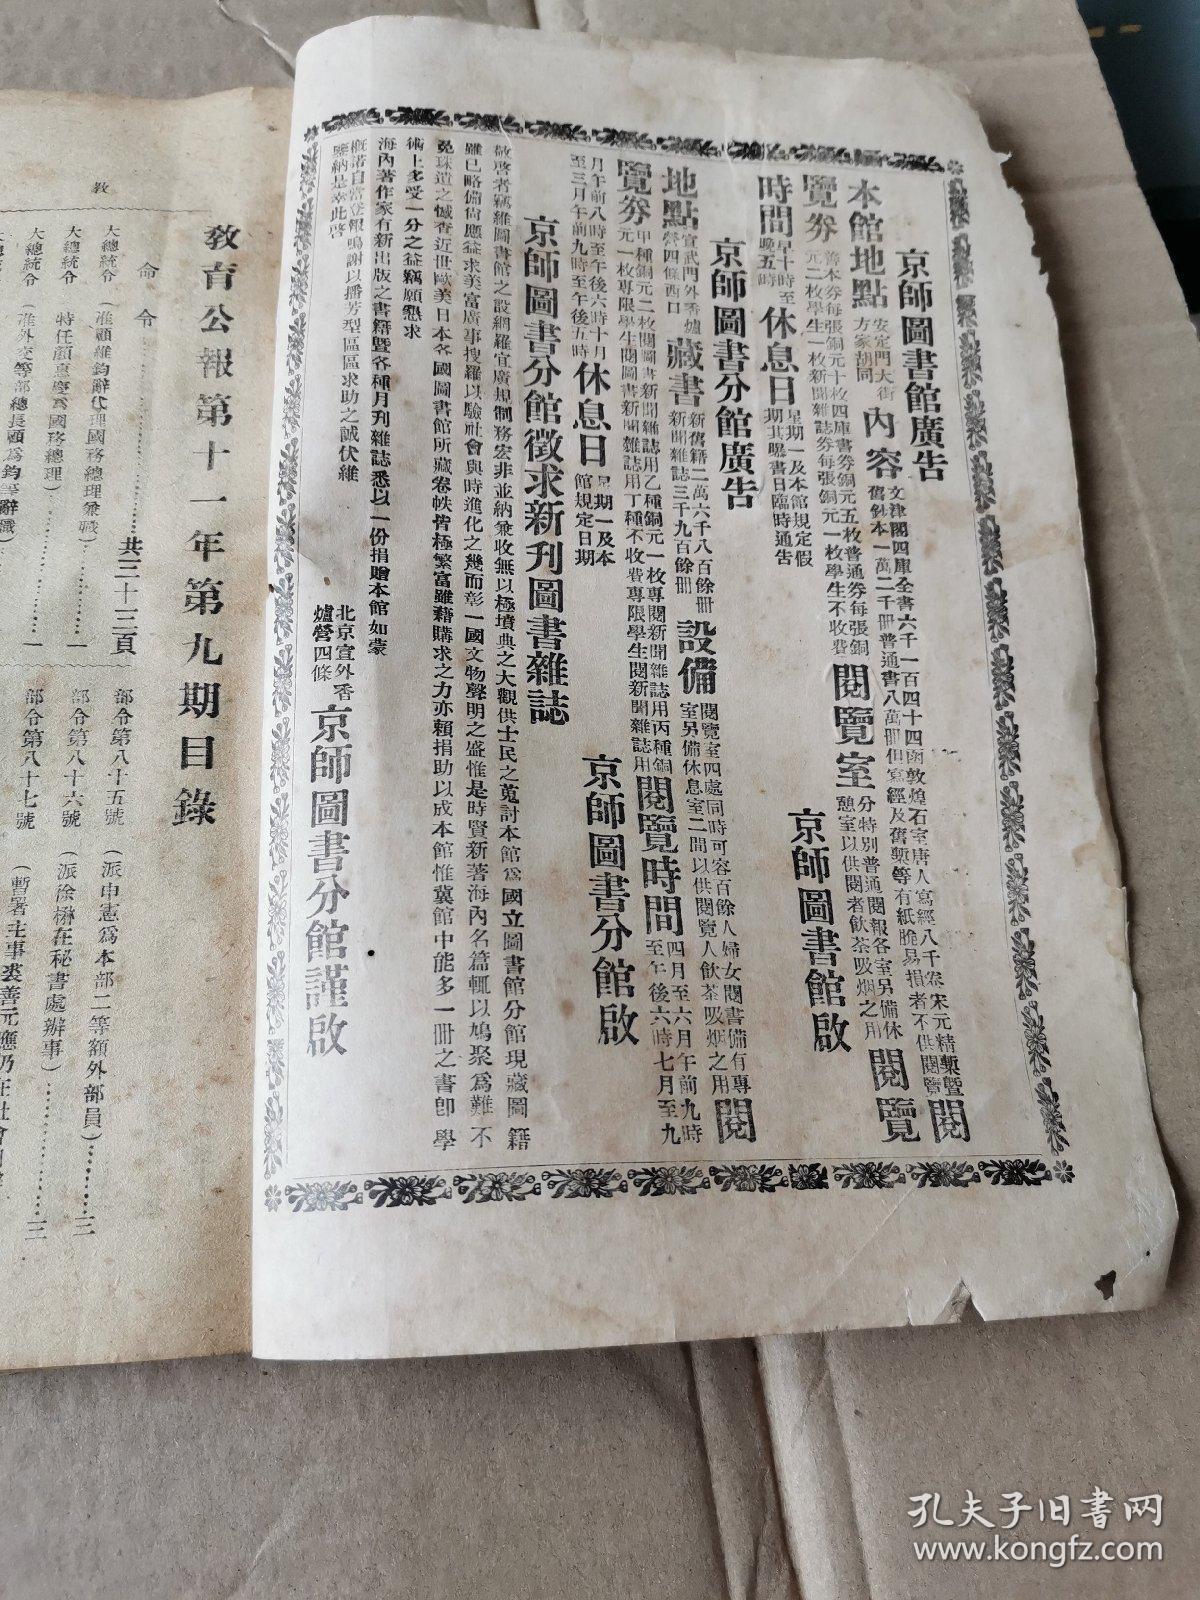 京師圖書館廣告
本館地點 安定門大街方家胡同 內容 文津閣四庫全書六千一百四十四函敦煌石室唐人寫經八千卷宋元精槧暨舊鈔本一萬二千冊普通書八萬冊但寫經及舊槧等有紙脆易損者不供閱覽 閱
覽券 善本券每張銅元十枚四庫書券銅元五枚普通券每張銅元二枚學生一枚新聞雜誌券每張銅元一枚學生不收費 閱覽室 分特別普通閱報各室另備休憩室以供閱者飲茶吸烟之用 閱覽
時間 早十時至晚五時 休息日 星期一及本館規定假期其曝書日臨時通告
京師圖書館啟
京師圖書分館廣告
地點 宣武門外香爐營四條西口 藏書 新舊籍二萬六千八百餘冊新聞雜誌三千九百餘冊 設備 閱覽室四處同時可容百餘人婦女閱書備有專室另備休息室二間以供閱覽人飲茶吸烟之用 閱
覽券 甲種銅元二枚閱圖書新聞雜誌用乙種銅元一枚專閱新聞雜誌用丙種銅元一枚專限學生閱圖書新聞雜誌用丁種不收費專限學生閱新聞雜誌用 閱覽時間 四月至六月午前九時至午後六時七月至九
月午前八時至午後六時十月至三月午前九時至午後五時 休息日 星期一及本館規定日期
京師圖書分館啟
京師圖書分館徵求新刊圖書雜誌
敬啓者竊維圖書館之設網羅宜廣規制務宏非並納兼收無以極墳典之大觀供士民之蒐討本館爲國立圖書館分館現藏圖籍
雖已略備尙應益求美富廣事搜羅以驗社會與時進化之幾而彰一國文物聲明之盛惟是時賢新著海內名篇輒以鳩聚爲難不
免珠遺之憾查近世歐美日本各國圖書館所藏卷帙皆極繁富雖藉購求之力亦賴捐助以成本館惟冀館中能多一冊之書卽學
術上多受一分之益竊願懇求
海內著作家有新出版之書籍暨各種月刊雜誌悉以一份捐贈本館如蒙
槪諾自當登報鳴謝以播芳型區區求助之誠伏維
鑒納是幸此啓
北京宣外香爐營四條 京師圖書分館謹啟
教
教育公報第十一年第九期目錄
命令……共三十三頁
大總統令（准顧維鈞辭代理國務總理兼職）……一
大總統令（特任顏惠慶爲國務總理）……一
部令第八十五號（派申憲爲本部二等額外部員）……三
部令第八十六號（派徐楙在秘書處辦事）……三
部令第八十七號
孔夫子旧书网
www.kongfz.com